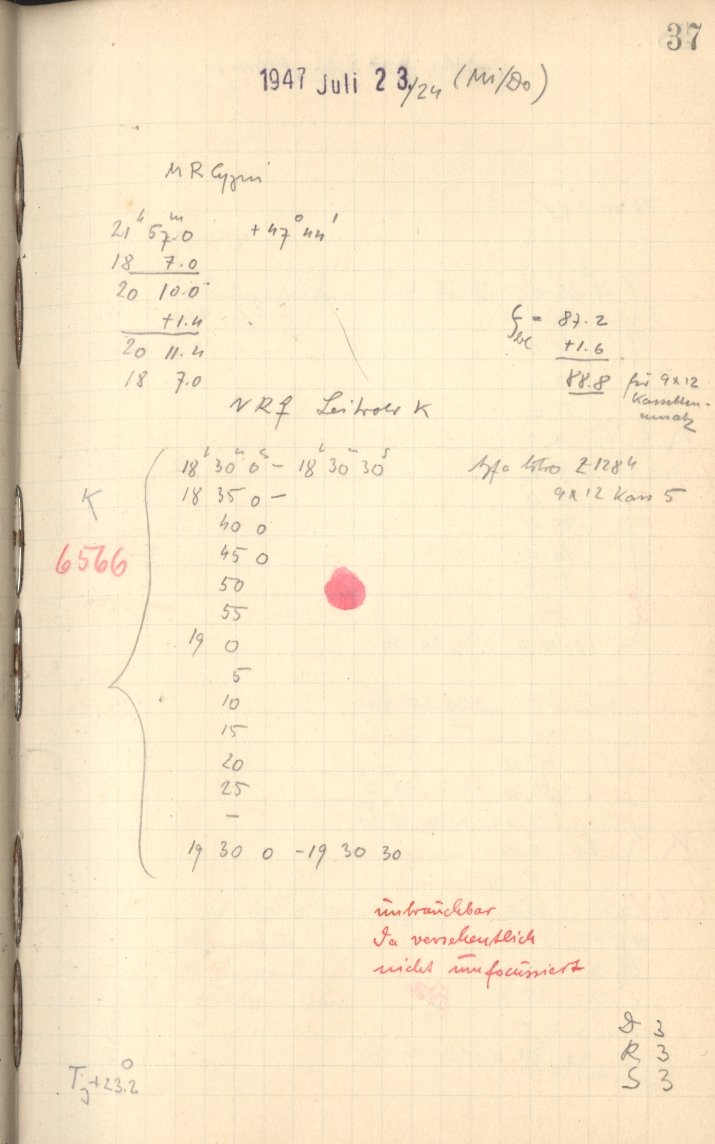 37
1947 Juli 23./24 (Mi/Do)
R Cygni
21ʰ 57ᵐ.0 +47° 44'
18 7.0
20 10.0
+1.4
20 11.4
18 7.0
= 87.2
+1.6
88.8 für 9x12
Kassetten-
ansatz
K
18ʰ 30ᵐ 0ˢ – 18ʰ 30ᵐ 30ˢ
18 35 0 –
40 0
45 0
50
55
19 0
5
10
15
20
25
–
19 30 0 – 19 30 30
Agfa Z 1284
9x12 Kass 5
K
6566
unbrauchbar
Da versehentlich
nicht umfocussiert
D 3
R 3
S 3
T +23.2°